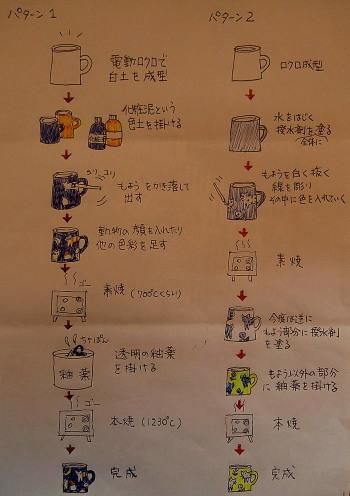 パターン1
電動ロクロで
白土を成型
化粧泥という
色土を掛ける
コリコリ
もようをかき落して
出す
動物の顔を入れたり
他の色彩を足す
ゴー
素焼(700℃くらい)
ちゃぽん
透明の釉薬
を掛ける
釉薬
ゴー
本焼(1230℃)
完成
パターン2
ロクロ成型
水をはじく
撥水剤を塗る
全体に
もようを白く抜く
線を彫り
その中に色を入れていく
素焼
今度は逆に
もよう部分に撥水剤
を塗る
もよう以外の部分
に釉薬を掛ける
本焼
完成